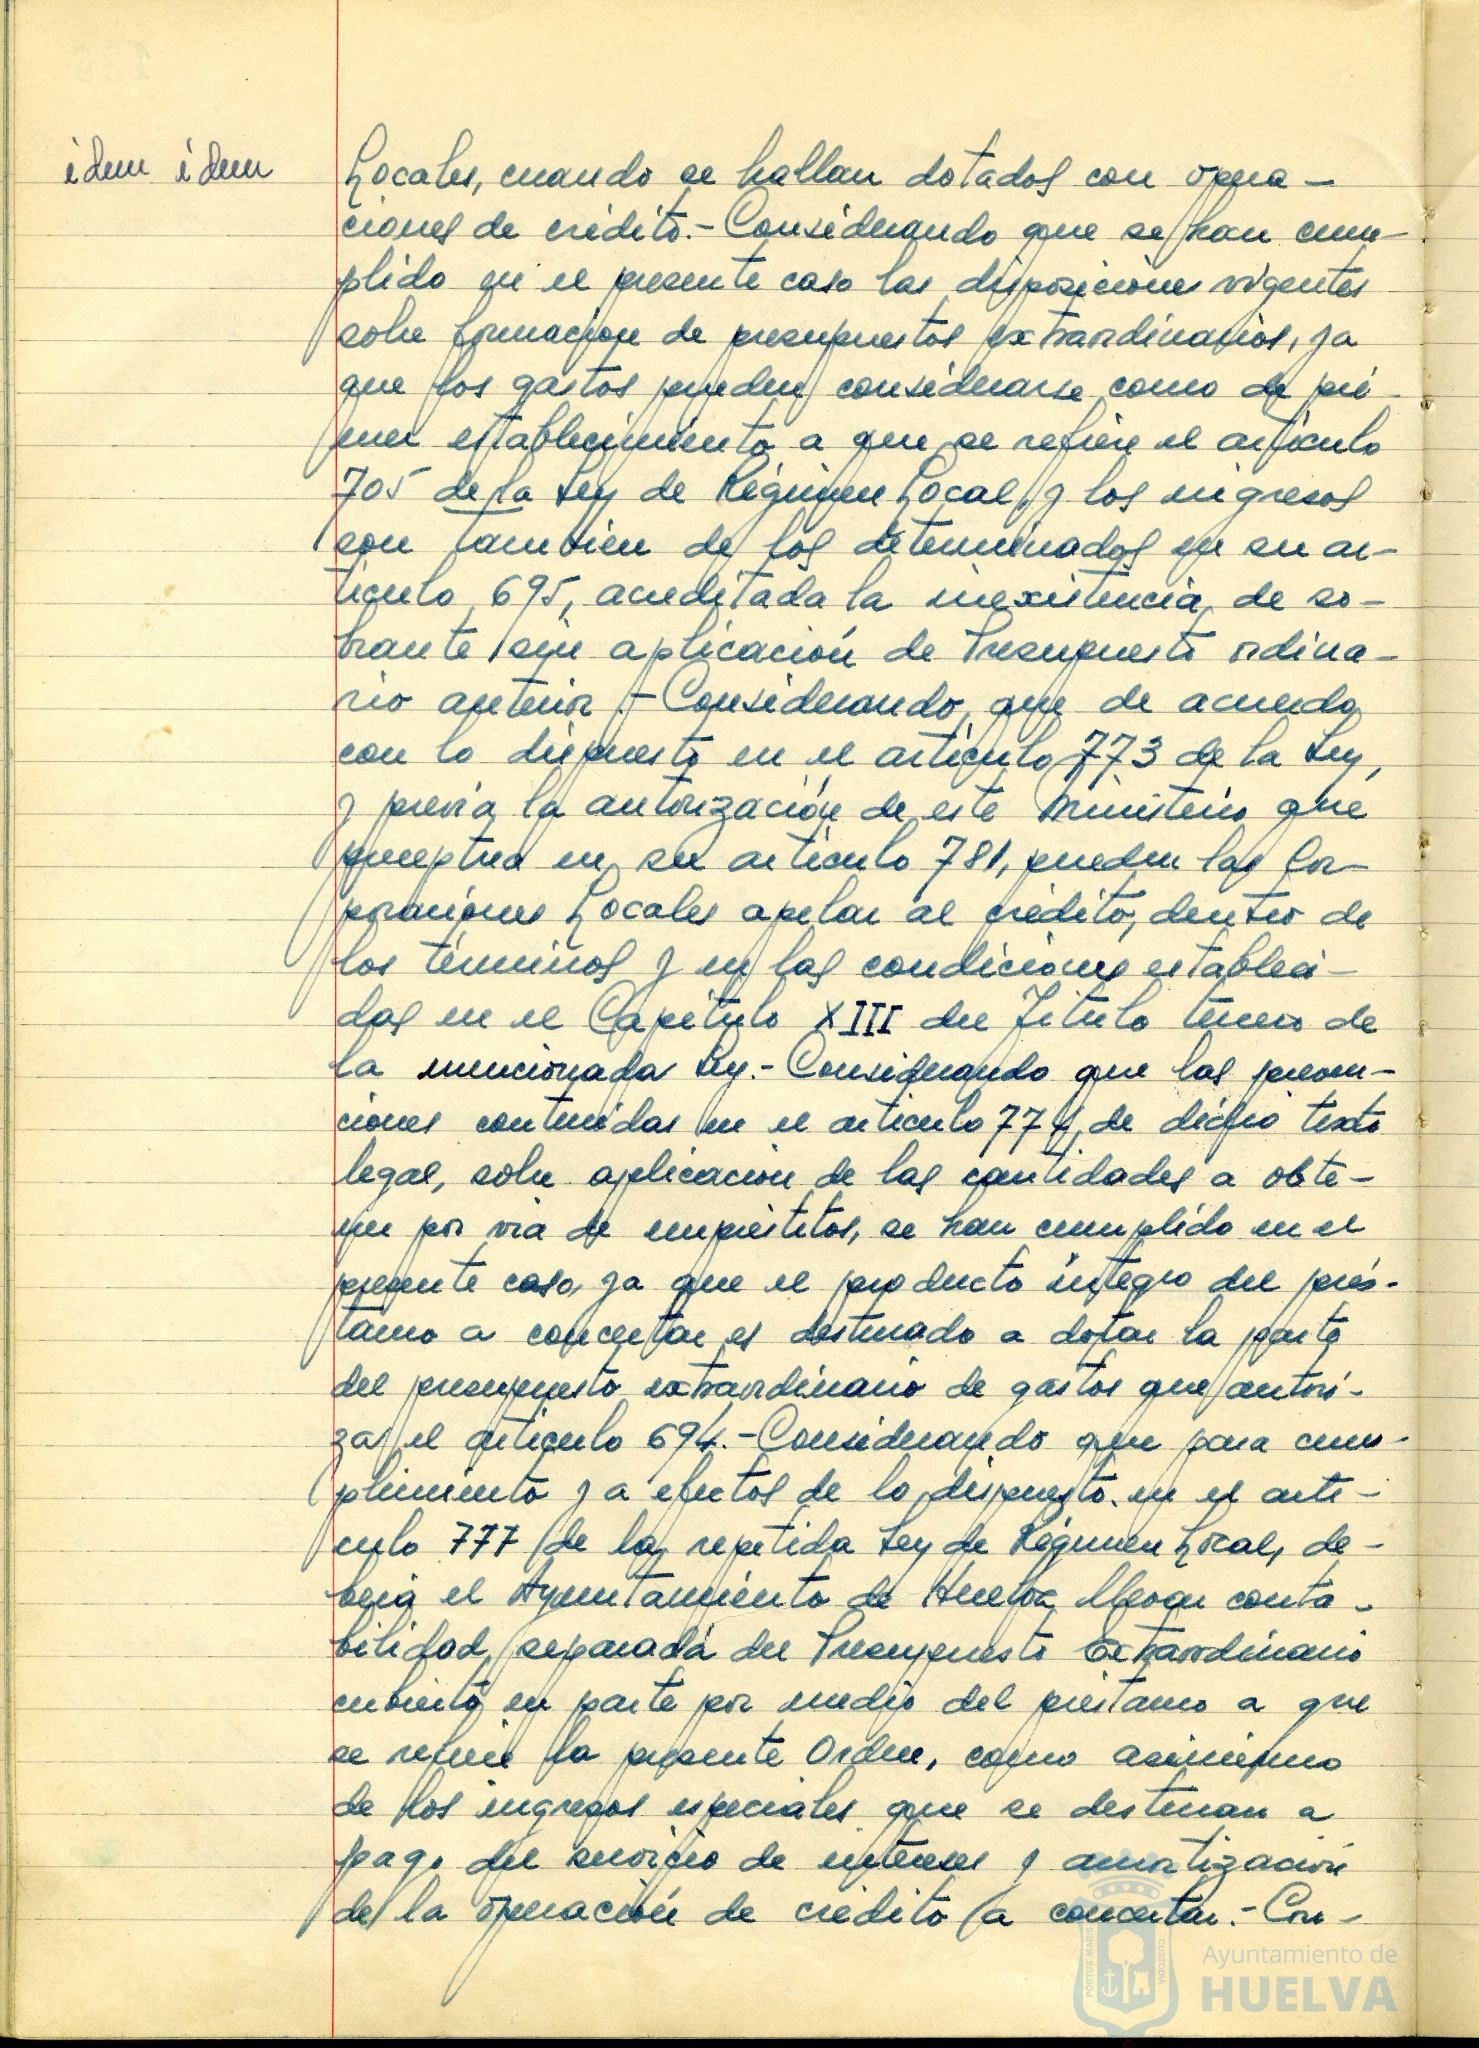 idem idem
Locales, cuando se hallan dotados con opera-
ciones de crédito.- Considerando que se han cum-
plido en el presente caso las disposiciones vigentes
sobre formacion de presupuestos extraordinarios, ya
que los gastos pueden considerarse como de pri-
mer establecimiento a que se refiere el artículo
705 de la Ley de Régimen Local, y los ingresos
son tambien de los determinados en su ar-
tículo 695, acreditada la inexistencia de so-
brante sin aplicación de Presupuesto ordina-
rio anterior.- Considerando, que de acuerdo
con lo dispuesto en el artículo 773 de la Ley,
y previa la autorización de este Ministerio que
preceptua en su artículo 781, pueden las Cor-
poraciones Locales apelar al crédito, dentro de
los términos y en las condiciones estableci-
das en el Capítulo XIII del Título tercero de
la mencionada Ley.- Considerando que las preven-
ciones contenidas en el artículo 774, de dicho texto
legal, sobre aplicacion de las cantidades a obte-
ner por via de empréstitos, se han cumplido en el
presente caso, ya que el producto íntegro del prés-
tamo a concertar es destinado a dotar la parte
del presupuesto extraordinario de gastos que autori-
za el artículo 694.- Considerando que para cum-
plimiento y a efectos de lo dispuesto en el artí-
culo 777 de la repetida Ley de Régimen Local, de-
berá el Ayuntamiento de Huelva llevar conta-
bilidad separada del Presupuesto Extraordinario
cubierto en parte por medio del préstamo a que
se refiere la presente Orden, como asimismo
de los ingresos especiales que se destinan a
pago del servicio de intereses y amortización
de la operación de crédito a concertar.- Con-
PORTUS MARIS CUSTODIA
Ayuntamiento de
HUELVA